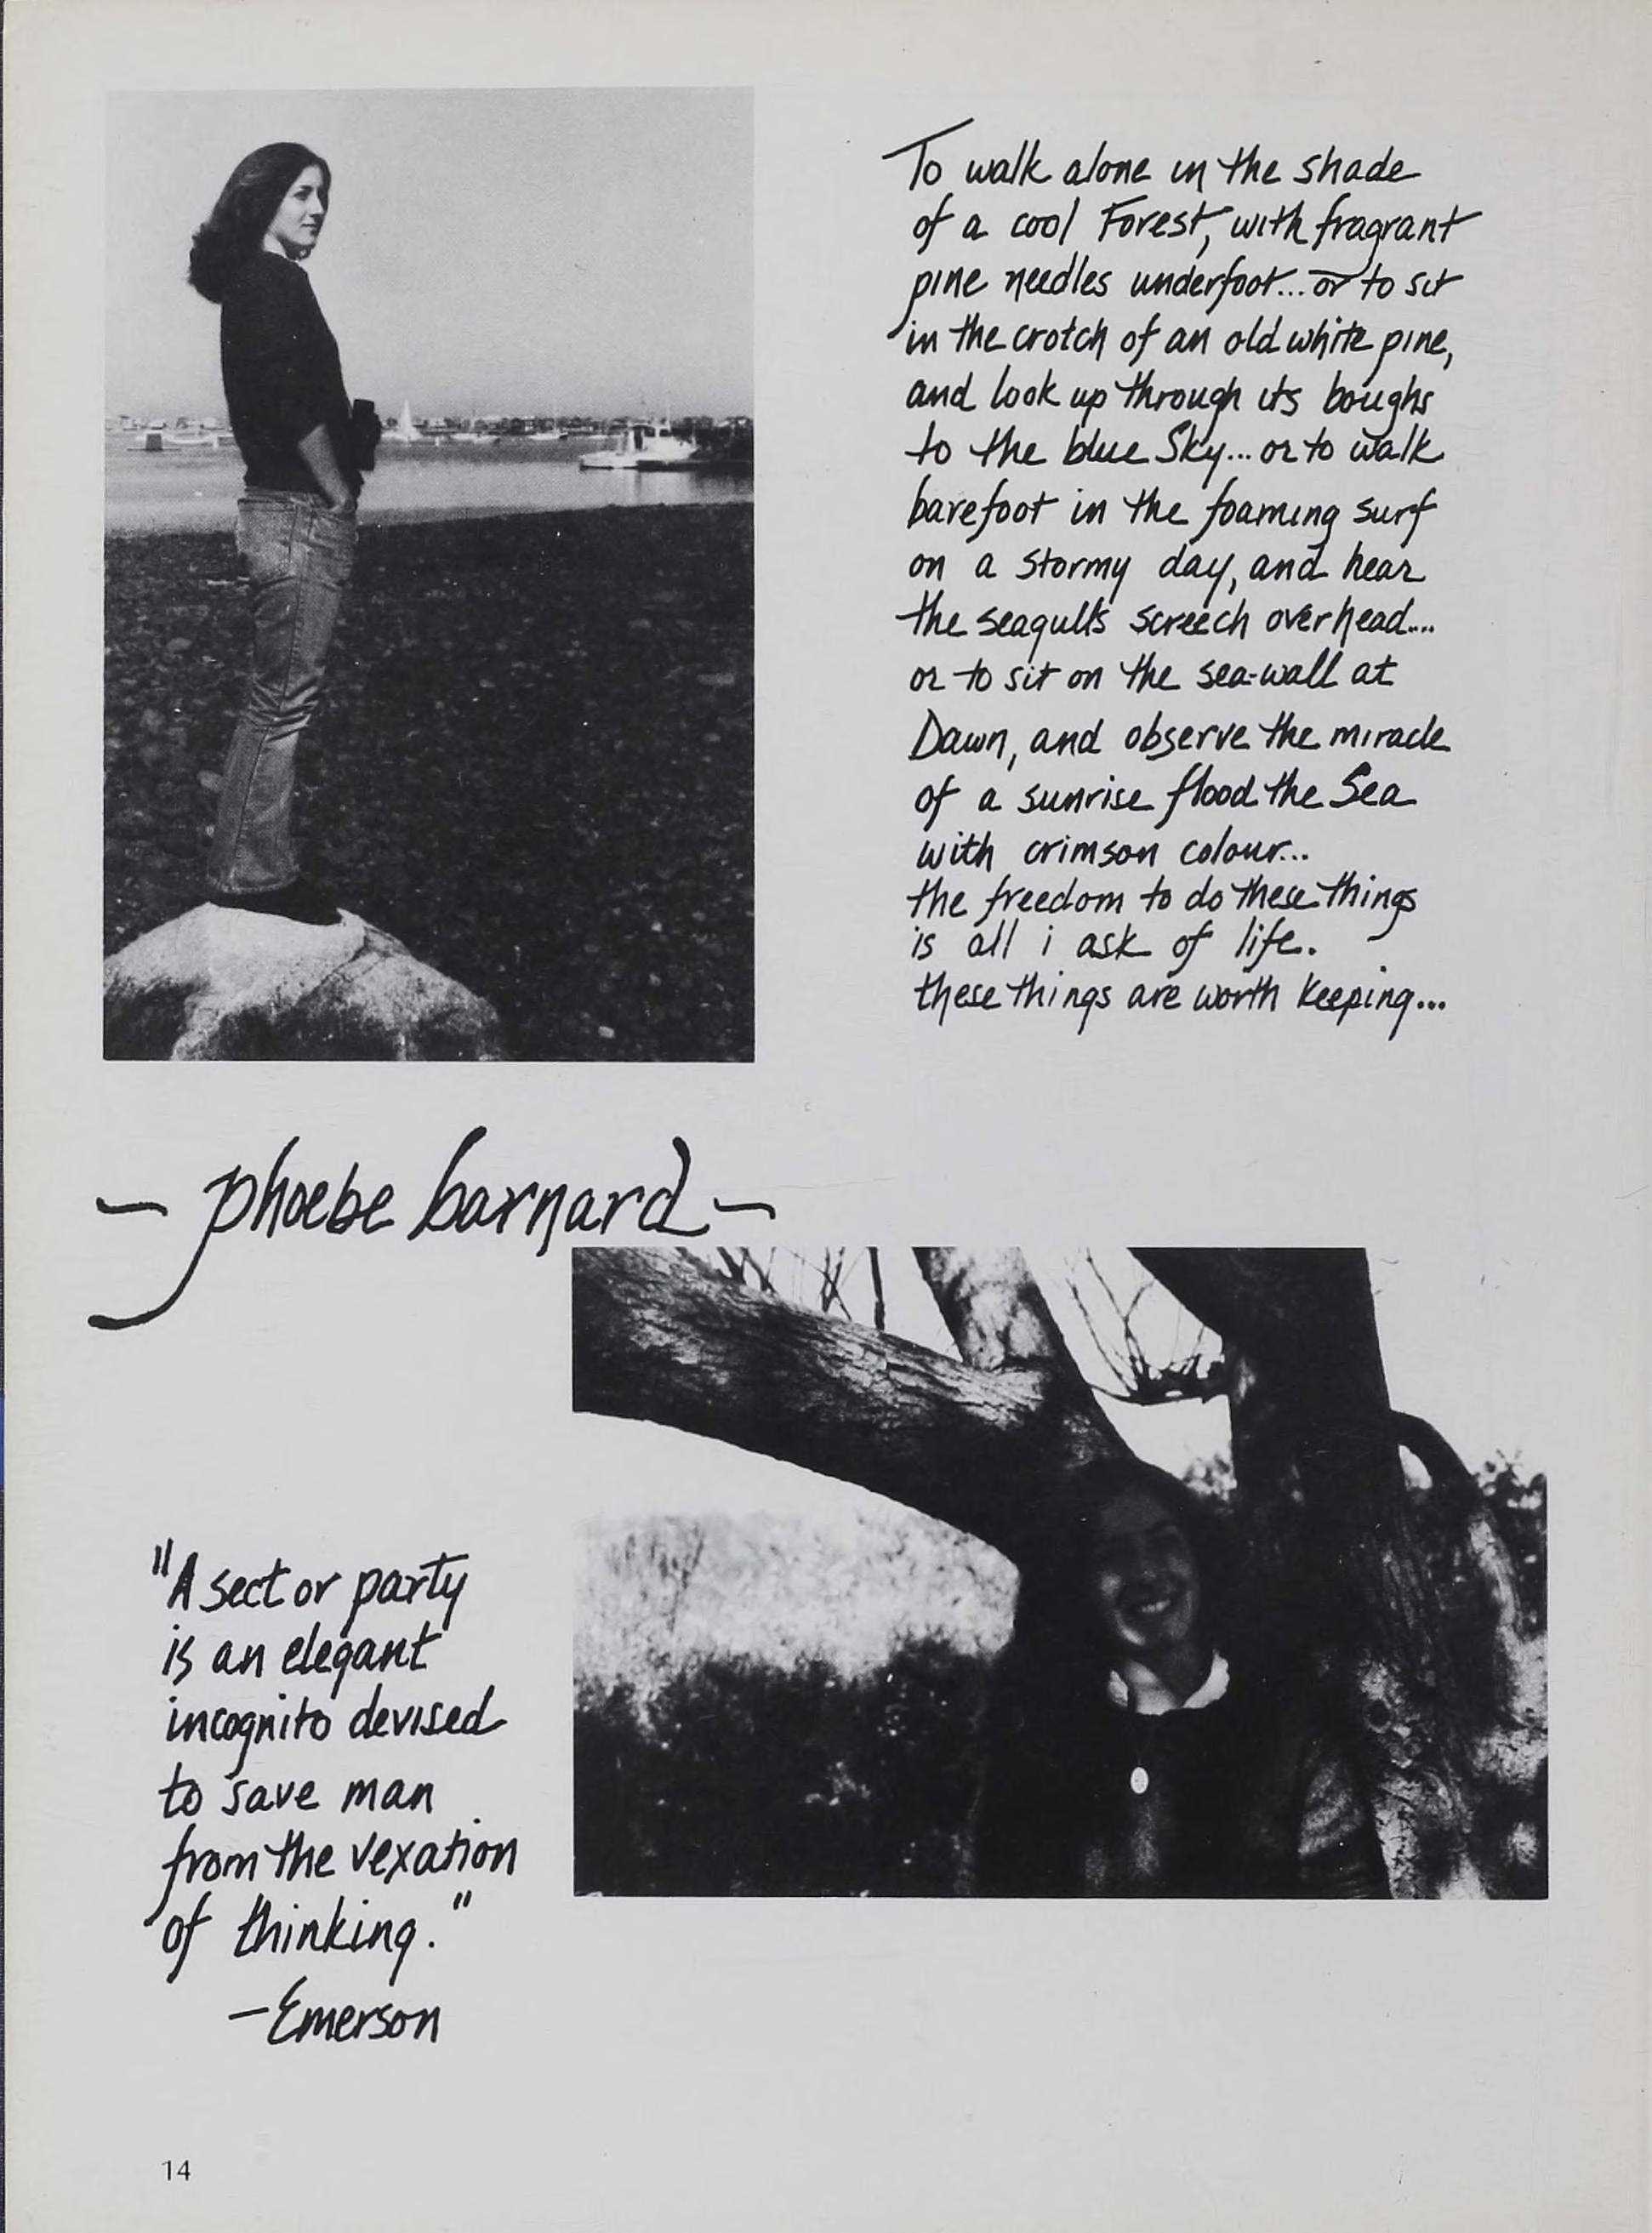 To walk alone in the shade
of a cool Forest, with fragrant
pine needles underfoot... or to sit
in the crotch of an old white pine,
and look up through its boughs
to the blue Sky... or to walk
barefoot in the foaming surf
on a stormy day, and hear
the seagulls screech overhead....
or to sit on the sea-wall at
Dawn, and observe the miracle
of a sunrise flood the Sea
with crimson colour...
the freedom to do these things
is all i ask of life.
these things are worth keeping...
- phoebe barnard -
"A sect or party
is an elegant
incognito devised
to save man
from the vexation
of thinking."
-Emerson
14